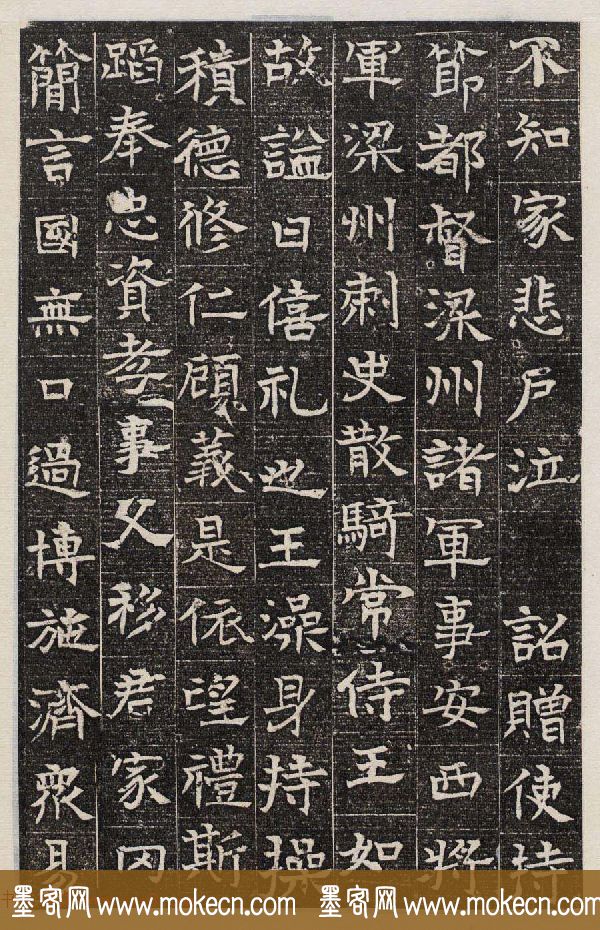 不知家悲戶泣 詔贈使持
節都督梁州諸軍事安西將
軍梁州刺史散騎常侍王如
故謚曰僖礼也王澡身持操
積德修仁顧義是依望禮斯
蹈奉忠資孝事父移君家罔
簡言國無口過博施濟眾易
墨客网 www.mokecn.com 墨客网 www.mokecn.com